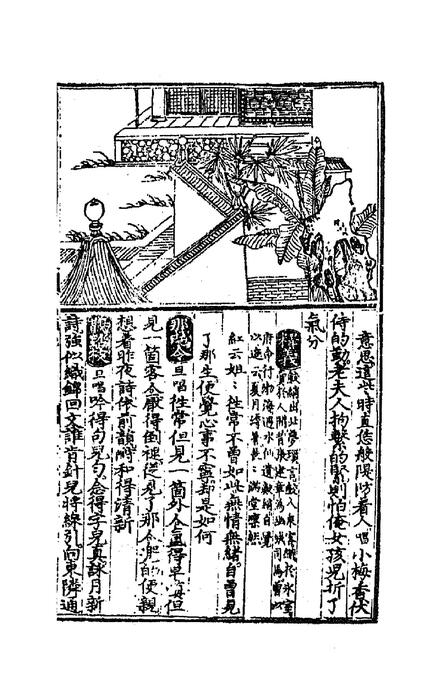 意思這些時直恁般堤防着人唱小梅香伏
侍的勤老夫人拘繫的緊則怕俺女孩兒折了
氣分
紅云姐〻徃常不曾如此無情無緒自曽見
了那生便覺心事不寧却是如何
那吒令旦唱徃常但見一箇外人氳得早嗔但
見一箇客人厭得倒褪從見了那人兠的便親
想着昨夜詩依前韻酬和得清新
鵲踏枝旦唱吟得句兒勻念得字兒真詠月新
詩強似織錦回文誰肯針兒將線引向東隣通